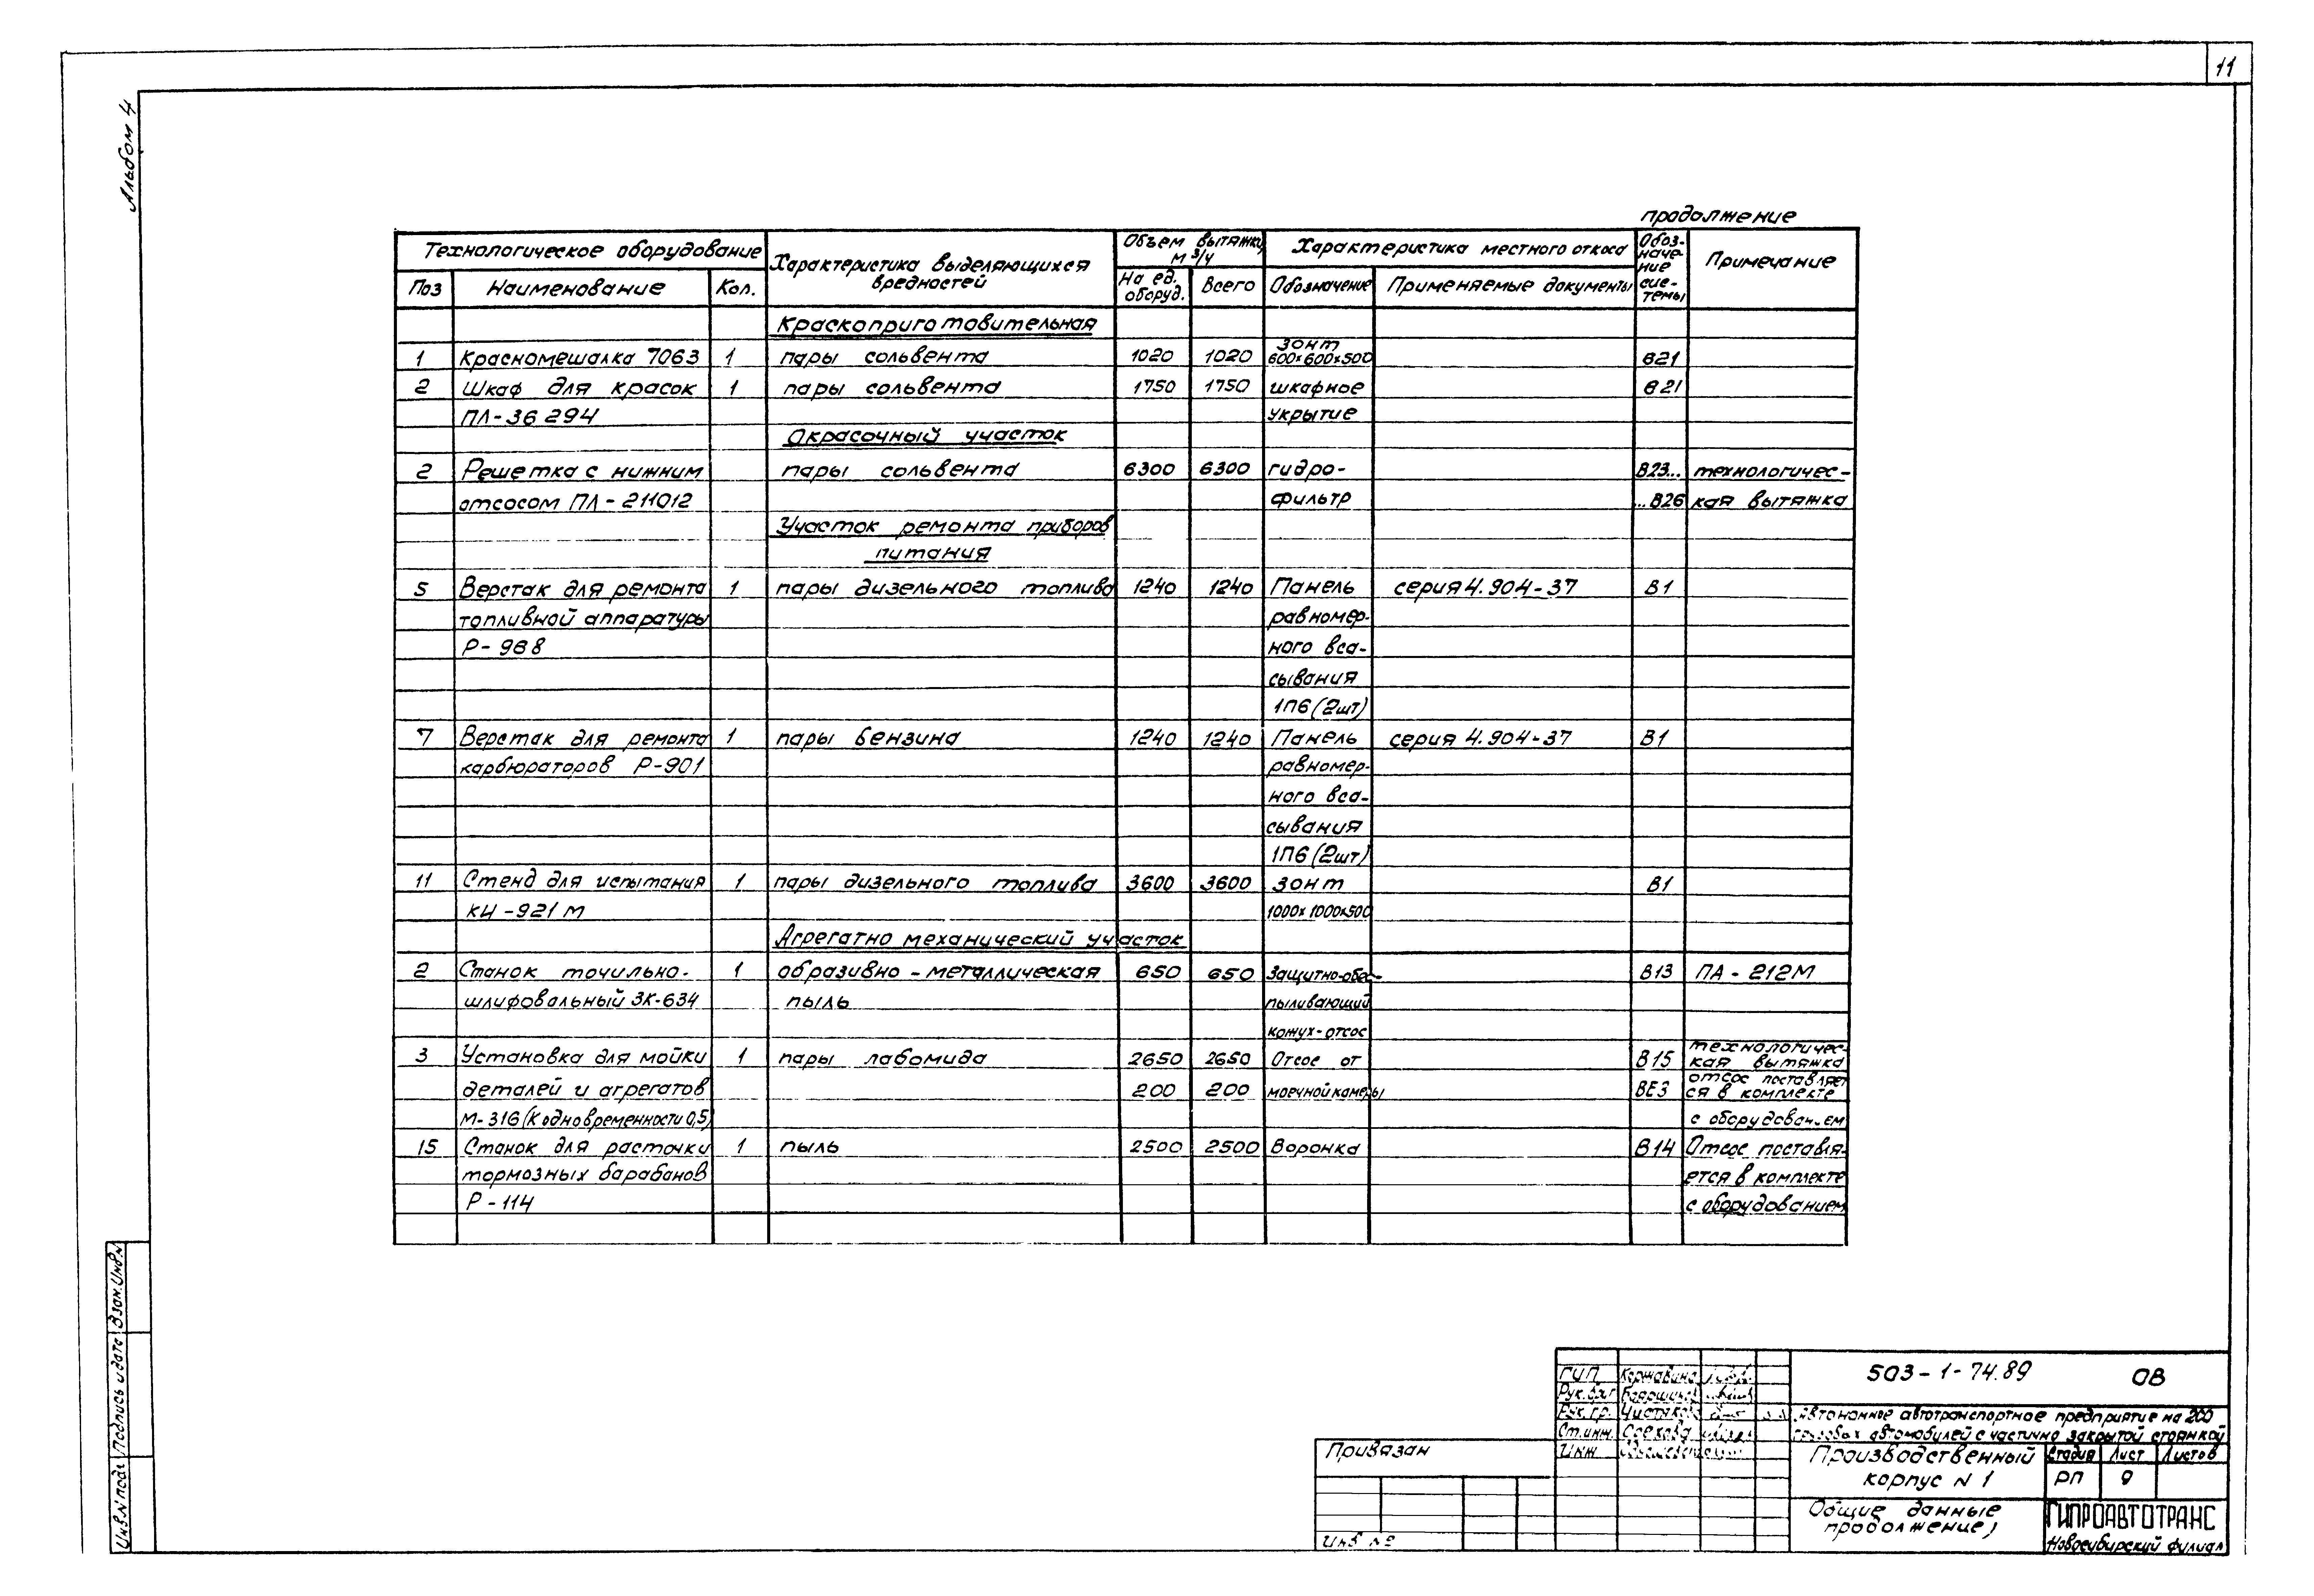 11
Альбом 4
продолжение
Технологическое оборудование
Характеристика выделяющихся вредностей
Объем вытяжки, м³/ч
Характеристика местного откоса
Обоз-наче-ние сис-темы
Примечание
Поз Наименование Кол. На ед. оборуд. Всего Обозначение Применяемые документы
Краскоприготовительная
1 Красномешалка 7063 1 пары сольвента 1020 1020 зонт 600×600×500 В21
2 Шкаф для красок 1 пары сольвента 1750 1750 шкафное В21
ПЛ-36 294 укрытие
Окрасочный участок
2 Решетка с нижним пары сольвента 6300 6300 гидро- В23... технологичес-
отсосом ПЛ-211012 фильтр ...В26 кая вытяжка
Участок ремонта приборов
питания
5 Верстак для ремонта 1 пары дизельного топлива 1240 1240 Панель серия 4.904-37 В1
топливной аппаратуры равномер-
Р-968 ного вса-
сывания
1П6 (2шт)
7 Верстак для ремонта 1 пары бензина 1240 1240 Панель серия 4.904-37 В1
карбюраторов Р-901 равномер-
ного вса-
сывания
1П6 (2шт)
11 Стенд для испытания 1 пары дизельного топлива 3600 3600 зонт В1
КИ-921М 1000×1000×500
Агрегатно механический участок
2 Станок точильно- 1 образивно-металлическая 650 650 Защитно-обес- В13 ПА-212М
шлифовальный 3К-634 пыль пыливающий
кожух-отсос
3 Установка для мойки 1 пары лабомида 2650 2650 Отсос от В15 технологичес-кая вытяжка
деталей и агрегатов 200 200 моечной камеры ВЕ3 отсос поставляет-ся в комплекте
М-316 (К одновременности 0,5) с оборудован.ем
15 Станок для расточки 1 пыль 2500 2500 Воронка В14 Отсос поставля-
тормозных барабанов ется в комплекте
Р-114 с оборудованием
Инв.N подл Подпись и дата Взам.Инв.N
Привязан
Инв №
ГИП Коржавина
Рук.
Рук.гр.
Ст.инж.
Инж
503-1-74.89 ОВ
Автономное автотранспортное предприятие на 200
грузовых автомобилей с частично закрытой стоянкой
Производственный
корпус N 1
Стадия Лист Листов
РП 9
Общие данные
продолжение)
ГИПРОАВТОТРАНС
Новосибирский филиал